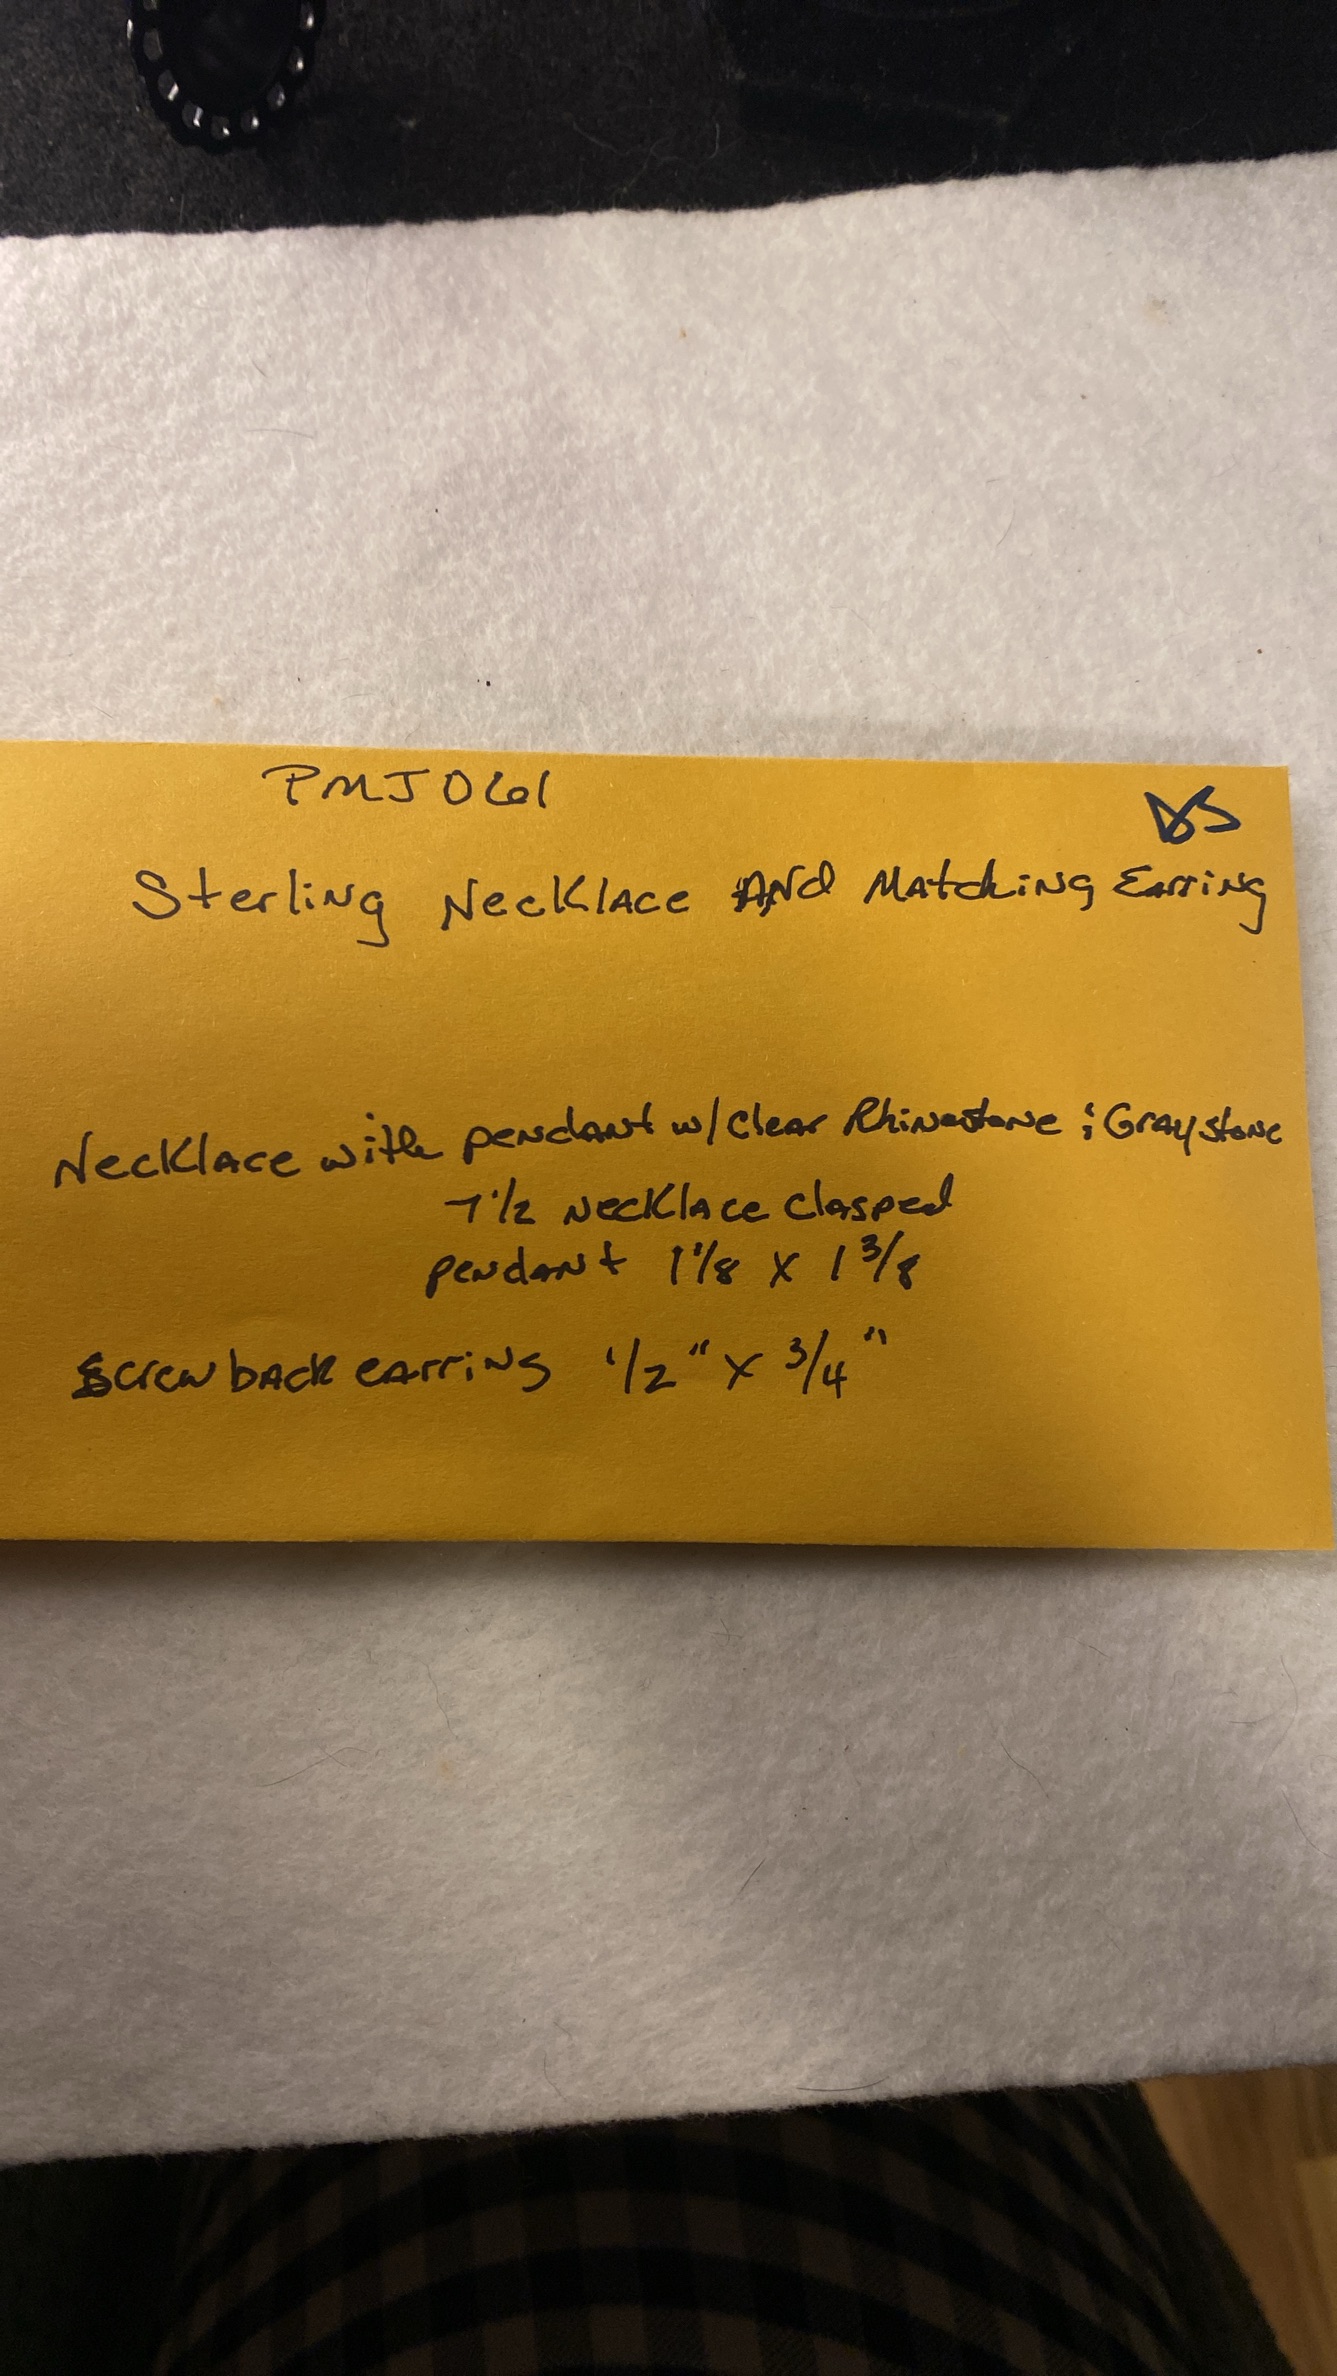 PMJ061
DS
Sterling Necklace And Matching Earring
Necklace with pendant w/clear Rhinestone & Gray stone
7 1/2 necklace clasped
pendant 1 1/8 x 1 3/8
Screw back earring 1/2" x 3/4"